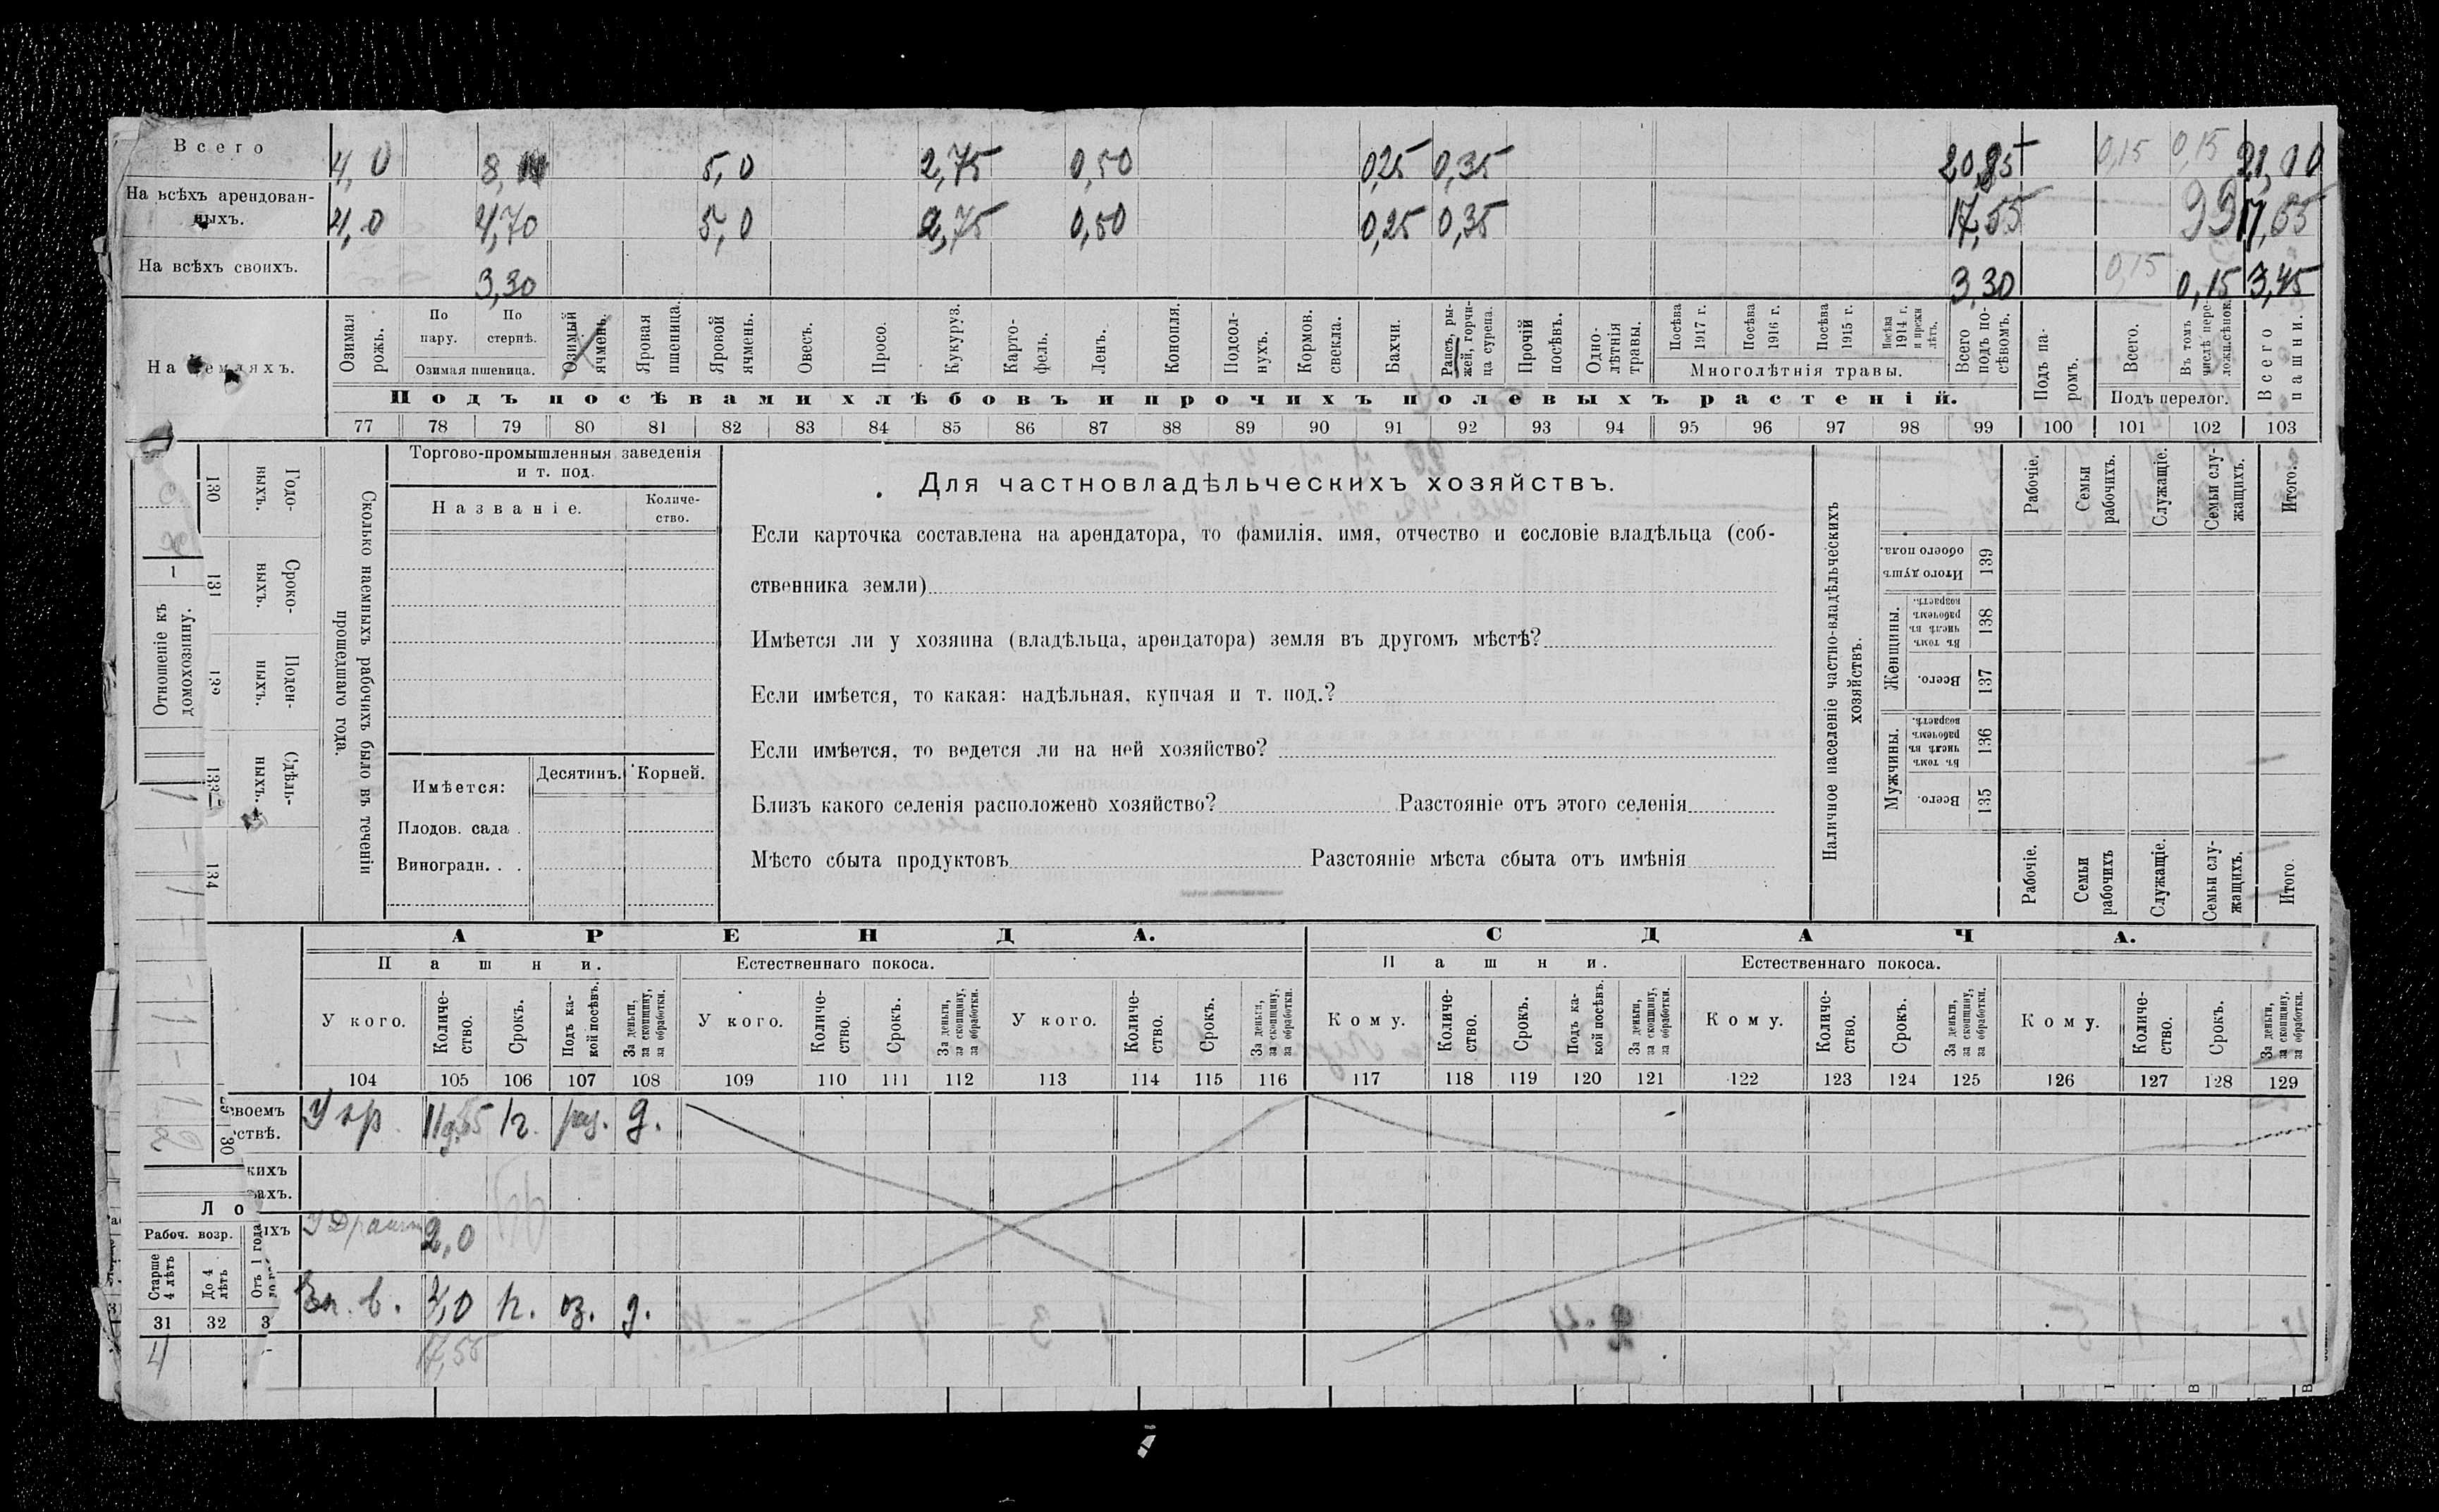 Всего 4,0 8, 5,0 2,75 0,50 0,25 0,35 20,85 0,15 0,15 21,00
На всѣхъ арендован-
ныхъ. 4,0 4,70 5,0 2,75 0,50 0,25 0,35 17,55 17,55
На всѣхъ своихъ. 3,30 3,30 0,15 0,15 3,45
На земляхъ.
Озимая рожь.
По пару.
По стернѣ.
Озимая пшеница.
Озимый ячмень.
Яровая пшеница.
Яровой ячмень.
Овесъ.
Просо.
Кукуруз.
Карто-
фель.
Ленъ.
Конопля.
Подсол-
нухъ.
Кормов. свекла.
Бахчи.
Рапсъ, ры-
жей, горчи-
ца сурепа.
Прочій посѣвъ.
Одно-
лѣтнія травы.
Посѣва 1917 г.
Посѣва 1916 г.
Посѣва 1915 г.
Посѣва 1914 г. и прежн лѣтъ.
Многолѣтнія травы.
Всего подъ по-
сѣвомъ.
Подъ па-
ромъ.
Всего.
Въ томъ числѣ пере-
ложн.сѣнок.
Подъ перелог.
Всего пашни.
Подъ посѣвами хлѣбовъ и прочихъ полевыхъ растеній.
77 78 79 80 81 82 83 84 85 86 87 88 89 90 91 92 93 94 95 96 97 98 99 100 101 102 103
Отношеніе къ
домохозяину.
1
130 Годо-
выхъ.
131 Сроко-
ныхъ.
132 Поден-
ныхъ.
133 Сдѣль-
ныхъ.
134
Сколько наемныхъ рабочихъ было въ теченіи
прошедшаго года.
Торгово-промышленныя заведенія
и т. под.
Названіе.
Количе-
ство.
Имѣется:
Десятинъ.
Корней.
Плодов. сада .
Виноградн. . .
Для частновладѣльческихъ хозяйствъ.
Если карточка составлена на арендатора, то фамилія, имя, отчество и сословіе владѣльца (соб-
ственника земли)
Имѣется ли у хозяина (владѣльца, арендатора) земля въ другомъ мѣстѣ?
Если имѣется, то какая: надѣльная, купчая и т. под.?
Если имѣется, то ведется ли на ней хозяйство?
Близъ какого селенія расположено хозяйство? Разстояніе отъ этого селенія
Мѣсто сбыта продуктовъ Разстояніе мѣста сбыта отъ имѣнія
Наличное населеніе частно-владѣльческихъ
хозяйствъ.
Рабочіе.
Семьи рабочихъ.
Служащіе.
Семьи слу-
жащихъ.
Итого.
Итого душъ обоего пола. 139
Женщины.
Въ томъ числѣ въ рабочемъ возрастѣ. 138
Всего. 137
Мужчины.
Въ томъ числѣ въ рабочемъ возрастѣ. 136
Всего. 135
Рабочіе.
Семьи рабочихъ
Служащіе.
Семьи слу-
жащихъ.
Итого.
АРЕНДА. СДАЧА.
Пашни. Естественнаго покоса. Пашни. Естественнаго покоса.
У кого.
Количе-
ство.
Срокъ.
Подъ ка-
кой посѣвъ.
За деньги, за скопщину, за обработки.
У кого.
Количе-
ство.
Срокъ.
За деньги, за скопщину, за обработки.
У кого.
Количе-
ство.
Срокъ.
За деньги, за скопщину, за обработки.
Кому.
Количе-
ство.
Срокъ.
Подъ ка-
кой посѣвъ.
За деньги, за скопщину, за обработки.
Кому.
Количе-
ство.
Срокъ.
За деньги, за скопщину, за обработки.
Кому.
Количе-
ство.
Срокъ.
За деньги, за скопщину, за обработки.
104 105 106 107 108 109 110 111 112 113 114 115 116 117 118 119 120 121 122 123 124 125 126 127 128 129
своемъ
ствѣ.
30
кихъ
ахъ.
ихъ
2,0
в. 4,0 г. оз. д.
17,55
Ло
Рабоч. возр.
Старше 4 лѣтъ
До 4 лѣтъ
Отъ 1 года
31 32 3
4